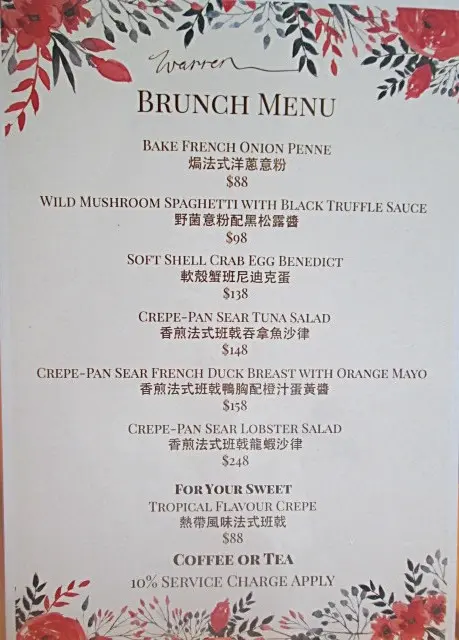 Warren
BRUNCH MENU
BAKE FRENCH ONION PENNE
焗法式洋蔥意粉
$88
WILD MUSHROOM SPAGHETTI WITH BLACK TRUFFLE SAUCE
野菌意粉配黑松露醬
$98
SOFT SHELL CRAB EGG BENEDICT
軟殼蟹班尼迪克蛋
$138
CREPE-PAN SEAR TUNA SALAD
香煎法式班戟吞拿魚沙律
$148
CREPE-PAN SEAR FRENCH DUCK BREAST WITH ORANGE MAYO
香煎法式班戟鴨胸配橙汁蛋黃醬
$158
CREPE-PAN SEAR LOBSTER SALAD
香煎法式班戟龍蝦沙律
$248
FOR YOUR SWEET
TROPICAL FLAVOUR CREPE
熱帶風味法式班戟
$88
COFFEE OR TEA
10% SERVICE CHARGE APPLY